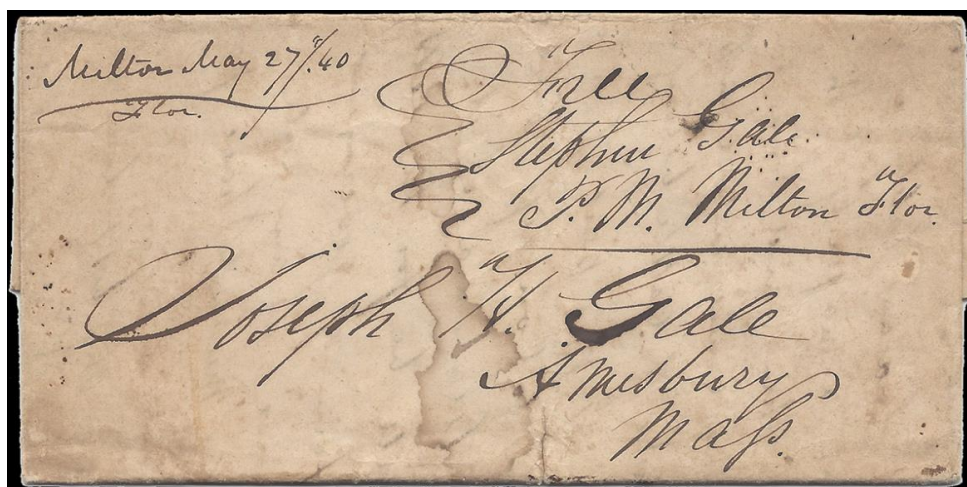 Milton May 27/.40
Flor.
Free
Stephen Gale
P. M. Milton Flor.
Joseph H. Gale
Amesbury
Mass.